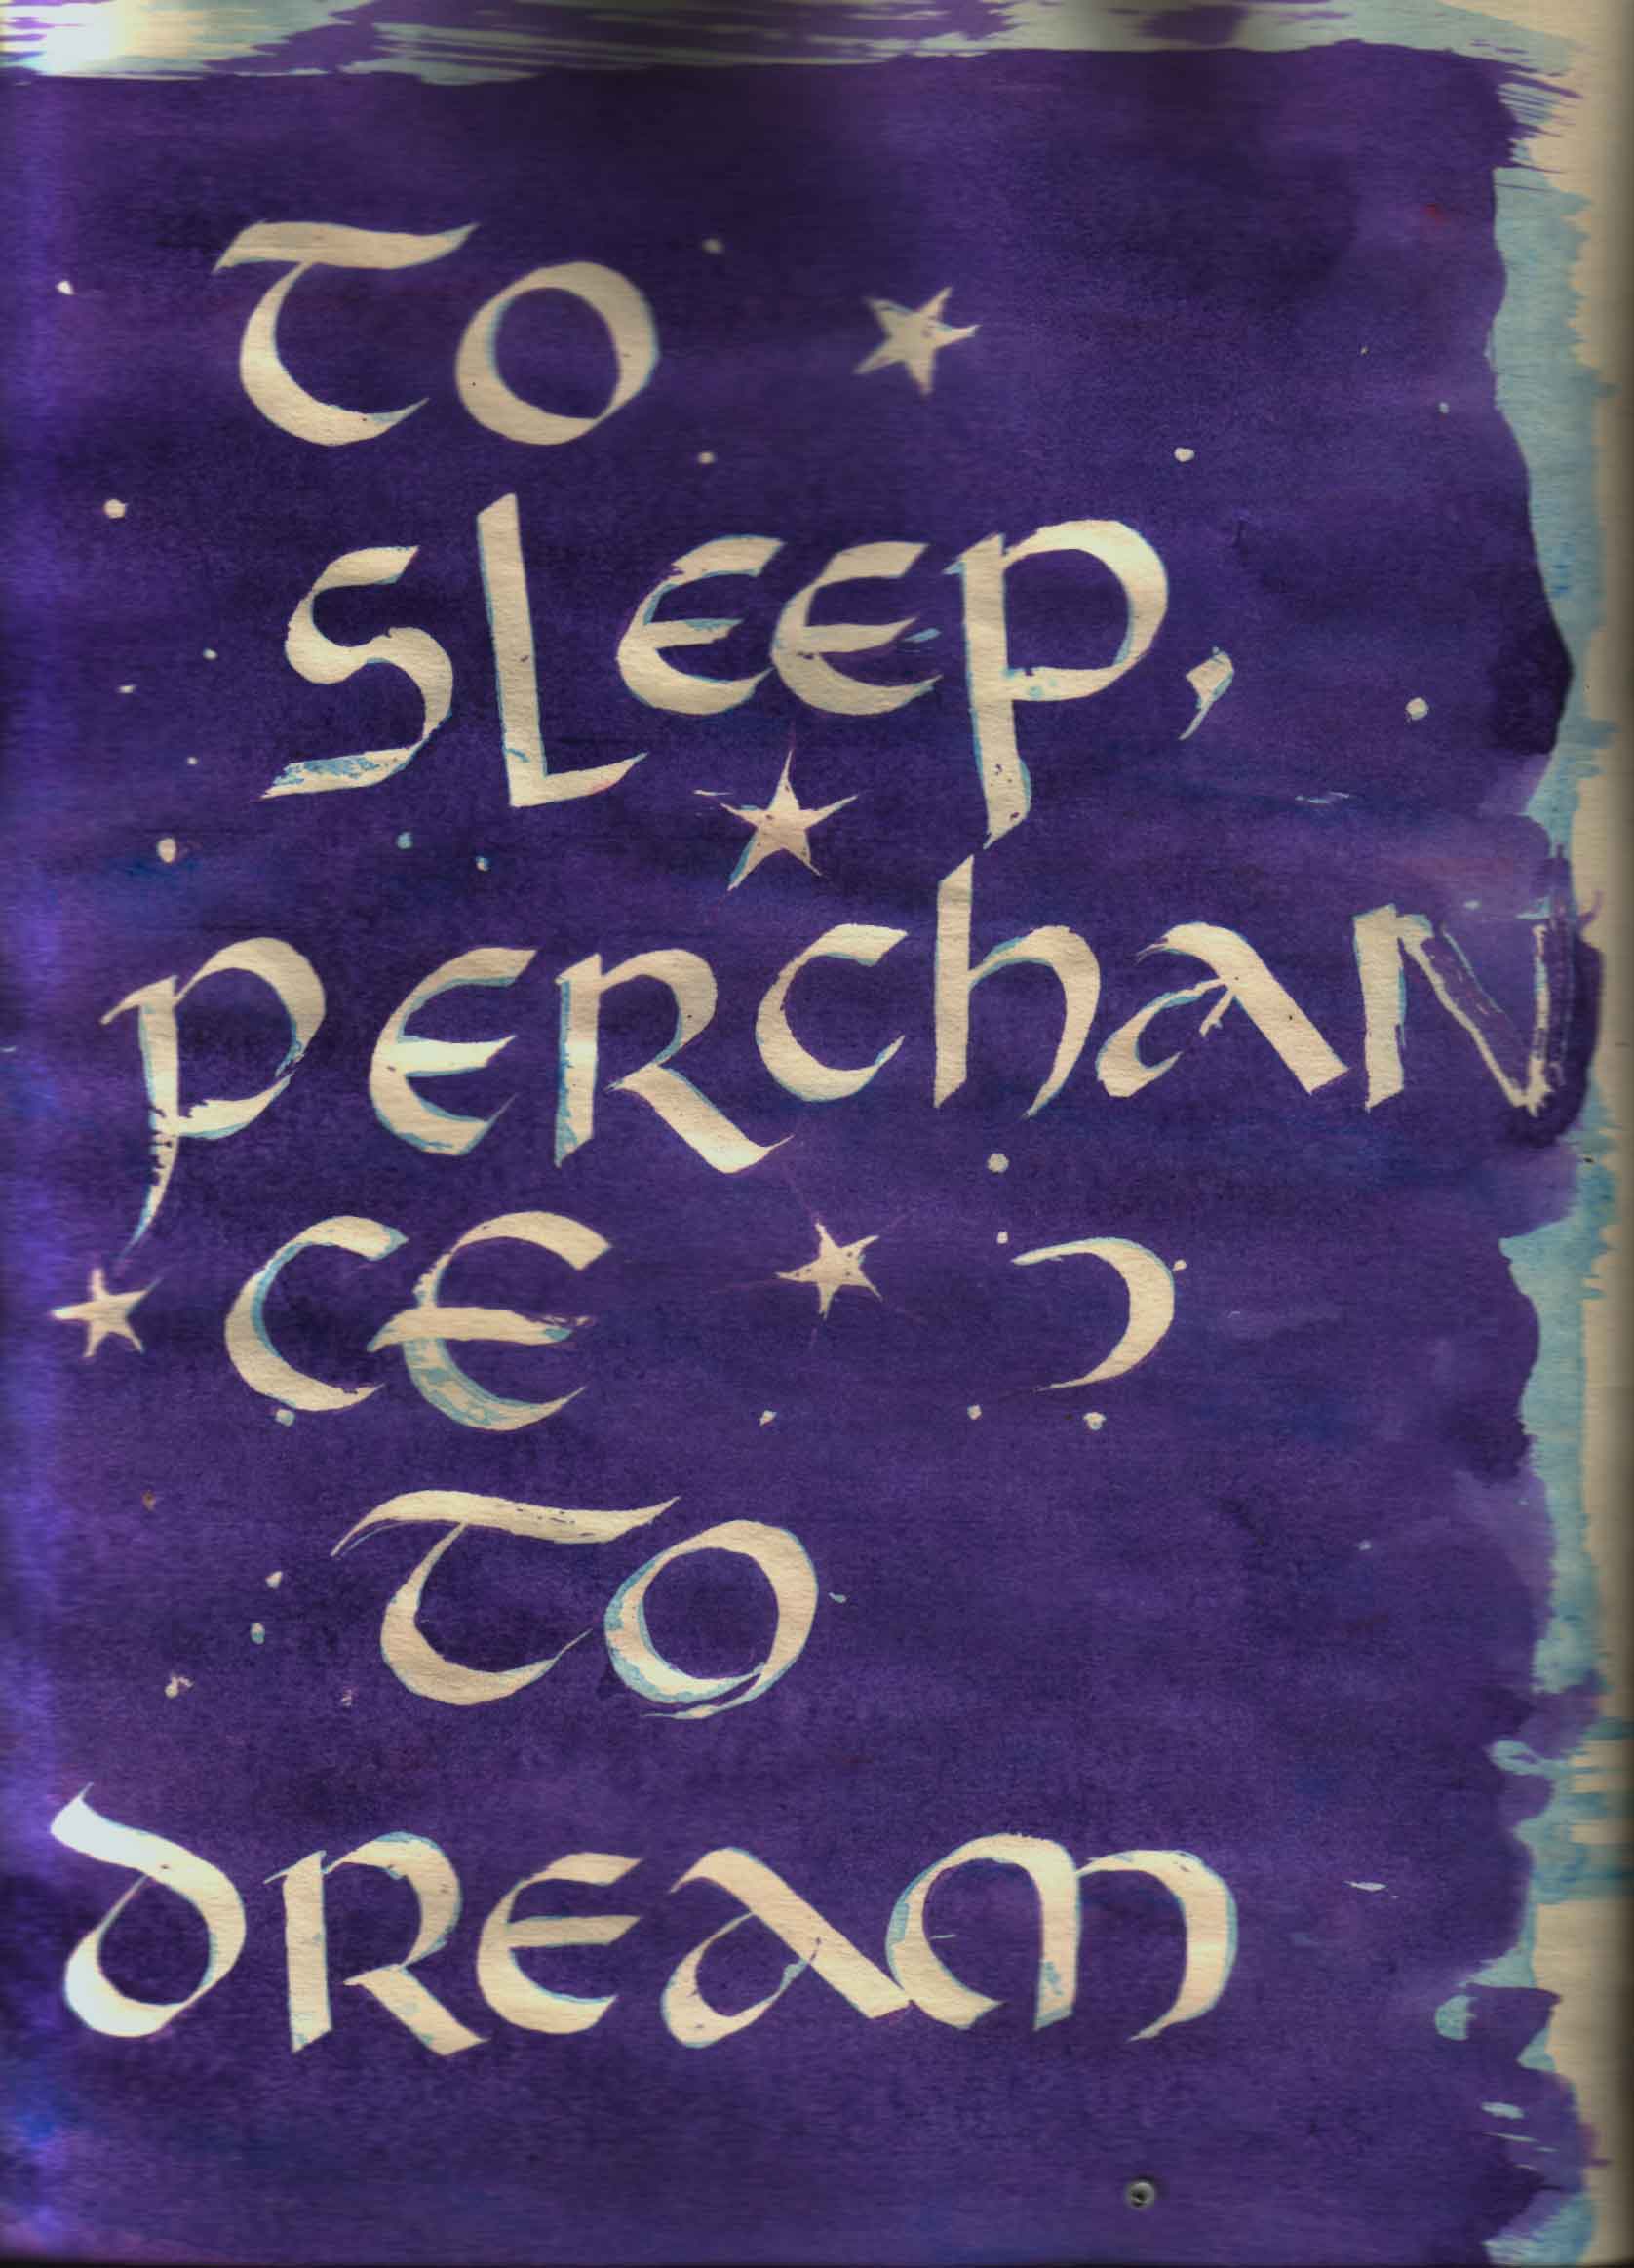 TO
SLEEP,
PERCHAN
CE
TO
DREAM